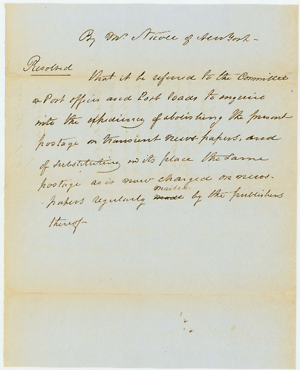 By Mr Nicoll of New York —
Resolved That it be referred to the Committee
on Post offices and Post Roads to enquire
into the expediency of abolishing the present
postage on transient news papers, and
of substituting in its place the same
postage as is now charged on news-
-papers regularly mailed by the publishers
thereof